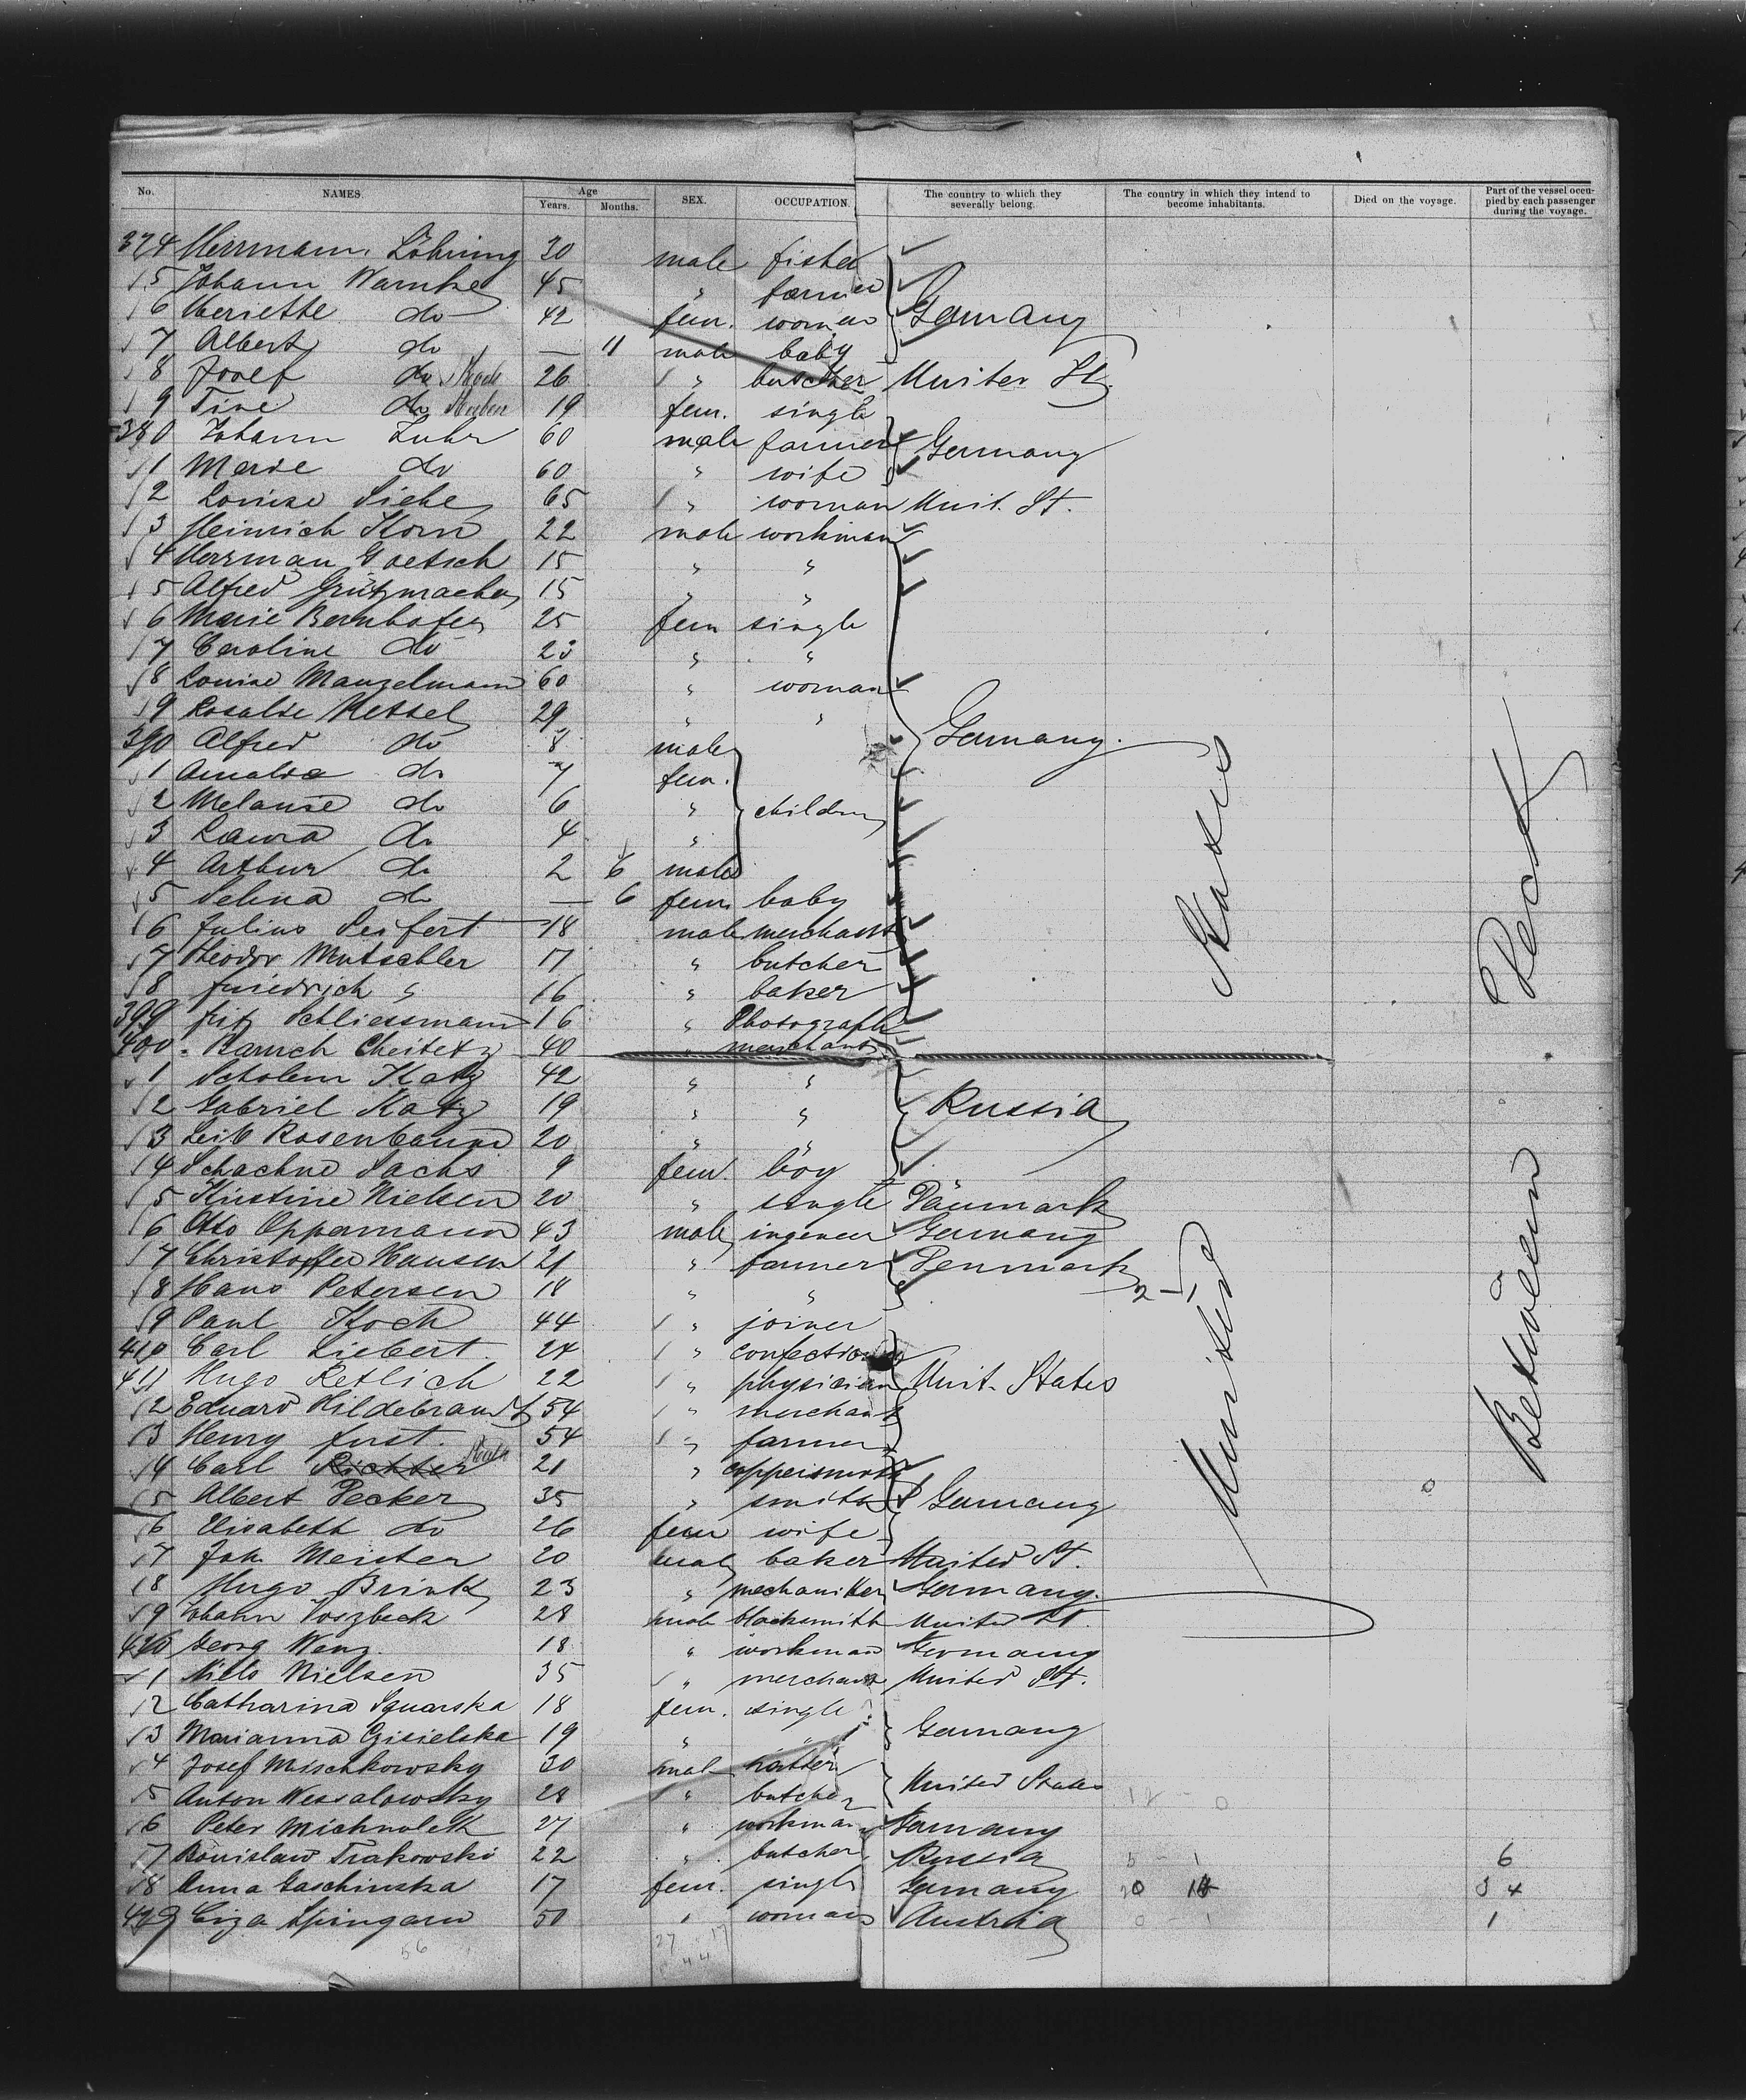 No. NAMES. Age Years. Months. SEX. OCCUPATION. The country to which they severally belong. The country in which they intend to become inhabitants. Died on the voyage. Part of the vessel occupied by each passenger during the voyage.
374 Herrmann Löhning 30 male fisher
5 Johann Warnke 45 " farmer
6 Henriette do 42 fem. woman Germany
7 Albert do — 11 male baby
8 Josef do 26 " butcher United St.
9 Tine do 19 fem. single
380 Johann Luhr 60 male farmer Germany
1 Marie do 60 " wife
2 Louise Siehe 65 " woman Unit. St.
3 Heinrich Korn 22 male workman
4 Herrman Goetsch 15 " "
5 Alfred Grützmacher 15 " "
6 Marie Bernhofer 25 fem single
7 Caroline do 23 " "
8 Louise Manzelmann 60 " woman
9 Rosalie Hessel 29 " "
390 Alfred do 8 male Germany.
1 Amalie do 7 fem.
2 Melanie do 6 " children
3 Laura do 4 "
4 Arthur do 2 6 male
5 Selina do — 6 fem. baby
6 Julius Seifert 18 male merchant
7 Theodor Mutschler 17 " butcher
8 Friedrich " 16 " baker
399 Fritz Schliessmann 16 " Photograph
400 Baruch Cheitetz 40 " merchant
1 Scholem Katz 42 " "
2 Gabriel Katz 19 " " Russia
3 Leib Rosenbaum 20 " "
4 Schachne Sachs 9 fem. boy
5 Kirstine Nielsen 20 " single Dänmark
6 Otto Oppermann 43 male ingeneur Germany
7 Christoffer Hansen 21 " farmer Denmark
8 Hans Petersen 18 " "
9 Paul Koch 44 " joiner
410 Carl Liebert 24 " confectioner
411 Hugo Retlich 22 " physician Unit. States
2 Eduard Hildebrandt 54 " merchant
3 Henry Fust. 54 " farmer
4 Carl Richter 21 " coppersmith
5 Albert Decker 35 " smith Germany
6 Elisabeth do 26 fem wife
7 Joh. Meister 20 male baker United St.
8 Hugo Brink 23 " mechaniker Germany.
9 Johann Voszbeck 28 male blacksmith United St.
420 Georg Wenz 18 " workman Germany
1 Niels Nielsen 35 " merchant United St.
2 Catharina Squarska 18 fem. single
3 Marianna Gisielska 19 " " Germany
4 Josef Mischkowsky 30 male hatter
5 Anton Wessalowsky 28 " butcher United States
6 Peter Michnolek 27 " workman Germany
7 Bronislaw Trakowski 22 " butcher Russia 5 - 1 6
8 Anna Gaschinska 17 fem. single Germany
429 Ciza Spingarn 50 " woman Austria 0 - 1 1
56
27 17
44
United States
Between Deck